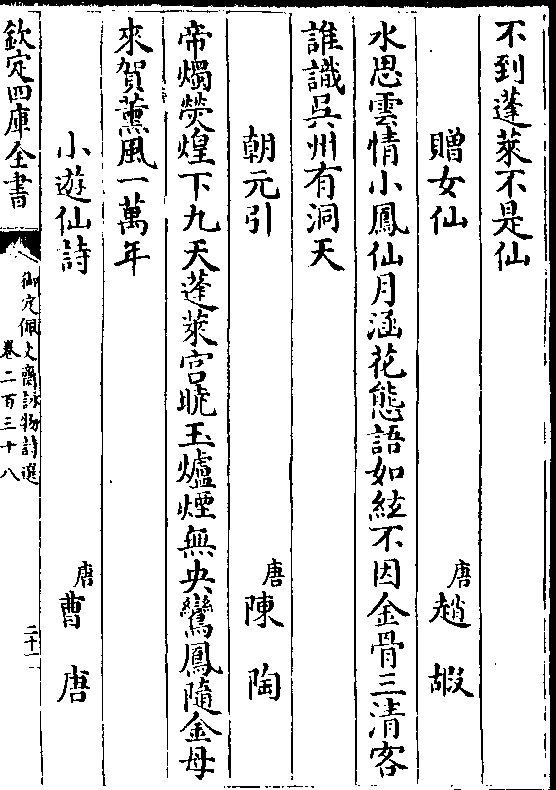 不到蓬萊不是仙
贈女仙　唐趙嘏
水思雲情小鳳仙月涵花態語如絃不因金骨三清客
誰識吳州有洞天
朝元引　唐陳陶
帝燭熒煌下九天蓬萊宫曉玉爐煙無央鸞鳳隨金母
來賀薰風一萬年
小遊仙詩　唐曹唐
欽定四庫全書
御定佩文齋詠物詩選
卷二百三十八
二十一